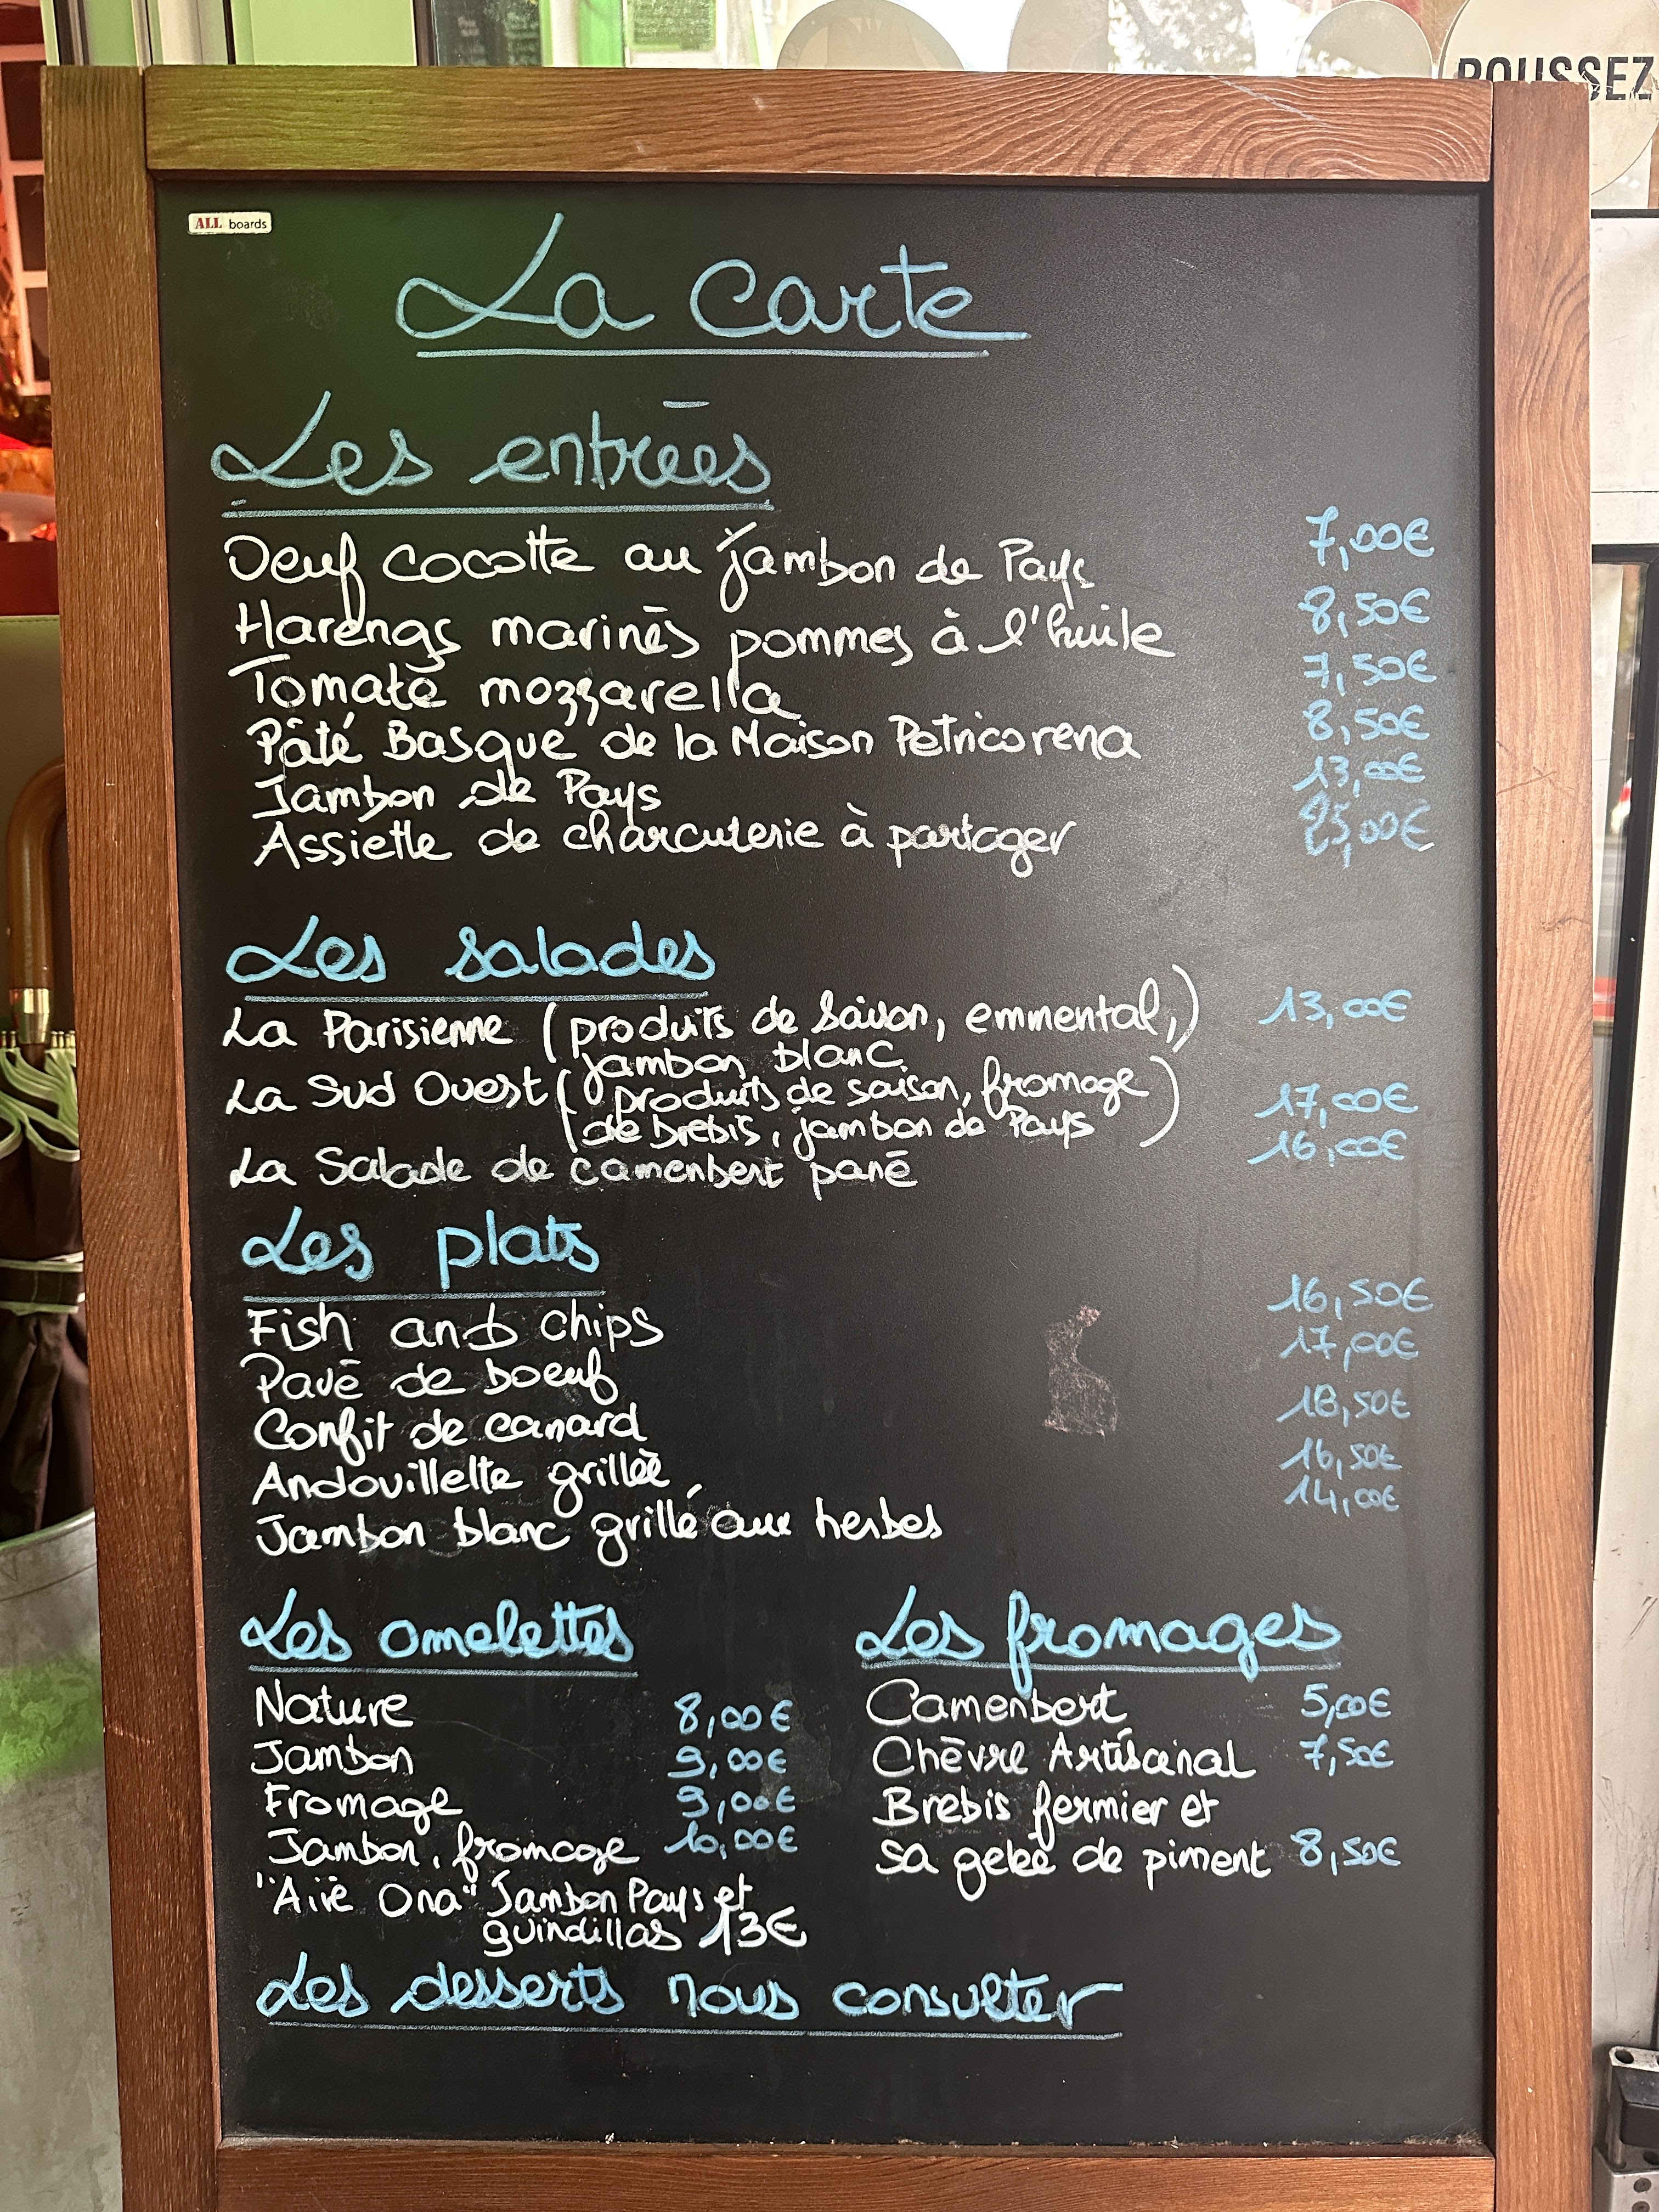 POUSSEZ
ALL boards
La carte
Les entrées
Oeuf cocotte au jambon de Pays 7,00€
Harengs marinés pommes à l'huile 8,50€
Tomate mozzarella 7,50€
Pâté Basque de la Maison Petricorena 8,50€
Jambon de Pays 13,00€
Assiette de charcuterie à partager 25,00€
Les salades
La Parisienne (produits de saison, emmental,) 13,00€
jambon blanc
La Sud Ouest (produits de saison, fromage 17,00€
de brebis, jambon de Pays)
La Salade de camenbert pané 16,00€
Les plats
Fish and chips 16,50€
Pavé de boeuf 17,00€
Confit de canard 18,50€
Andouillette grillée 16,50€
Jambon blanc grillé aux herbes 14,00€
Les omelettes
Nature 8,00€
Jambon 9,00€
Fromage 9,00€
Jambon, fromage 10,00€
"Airé Ona" Jambon Pays et
guindillas 13€
Les fromages
Camenbert 5,00€
Chèvre Artisanal 7,50€
Brebis fermier et
sa gelée de piment 8,50€
Les desserts nous consulter